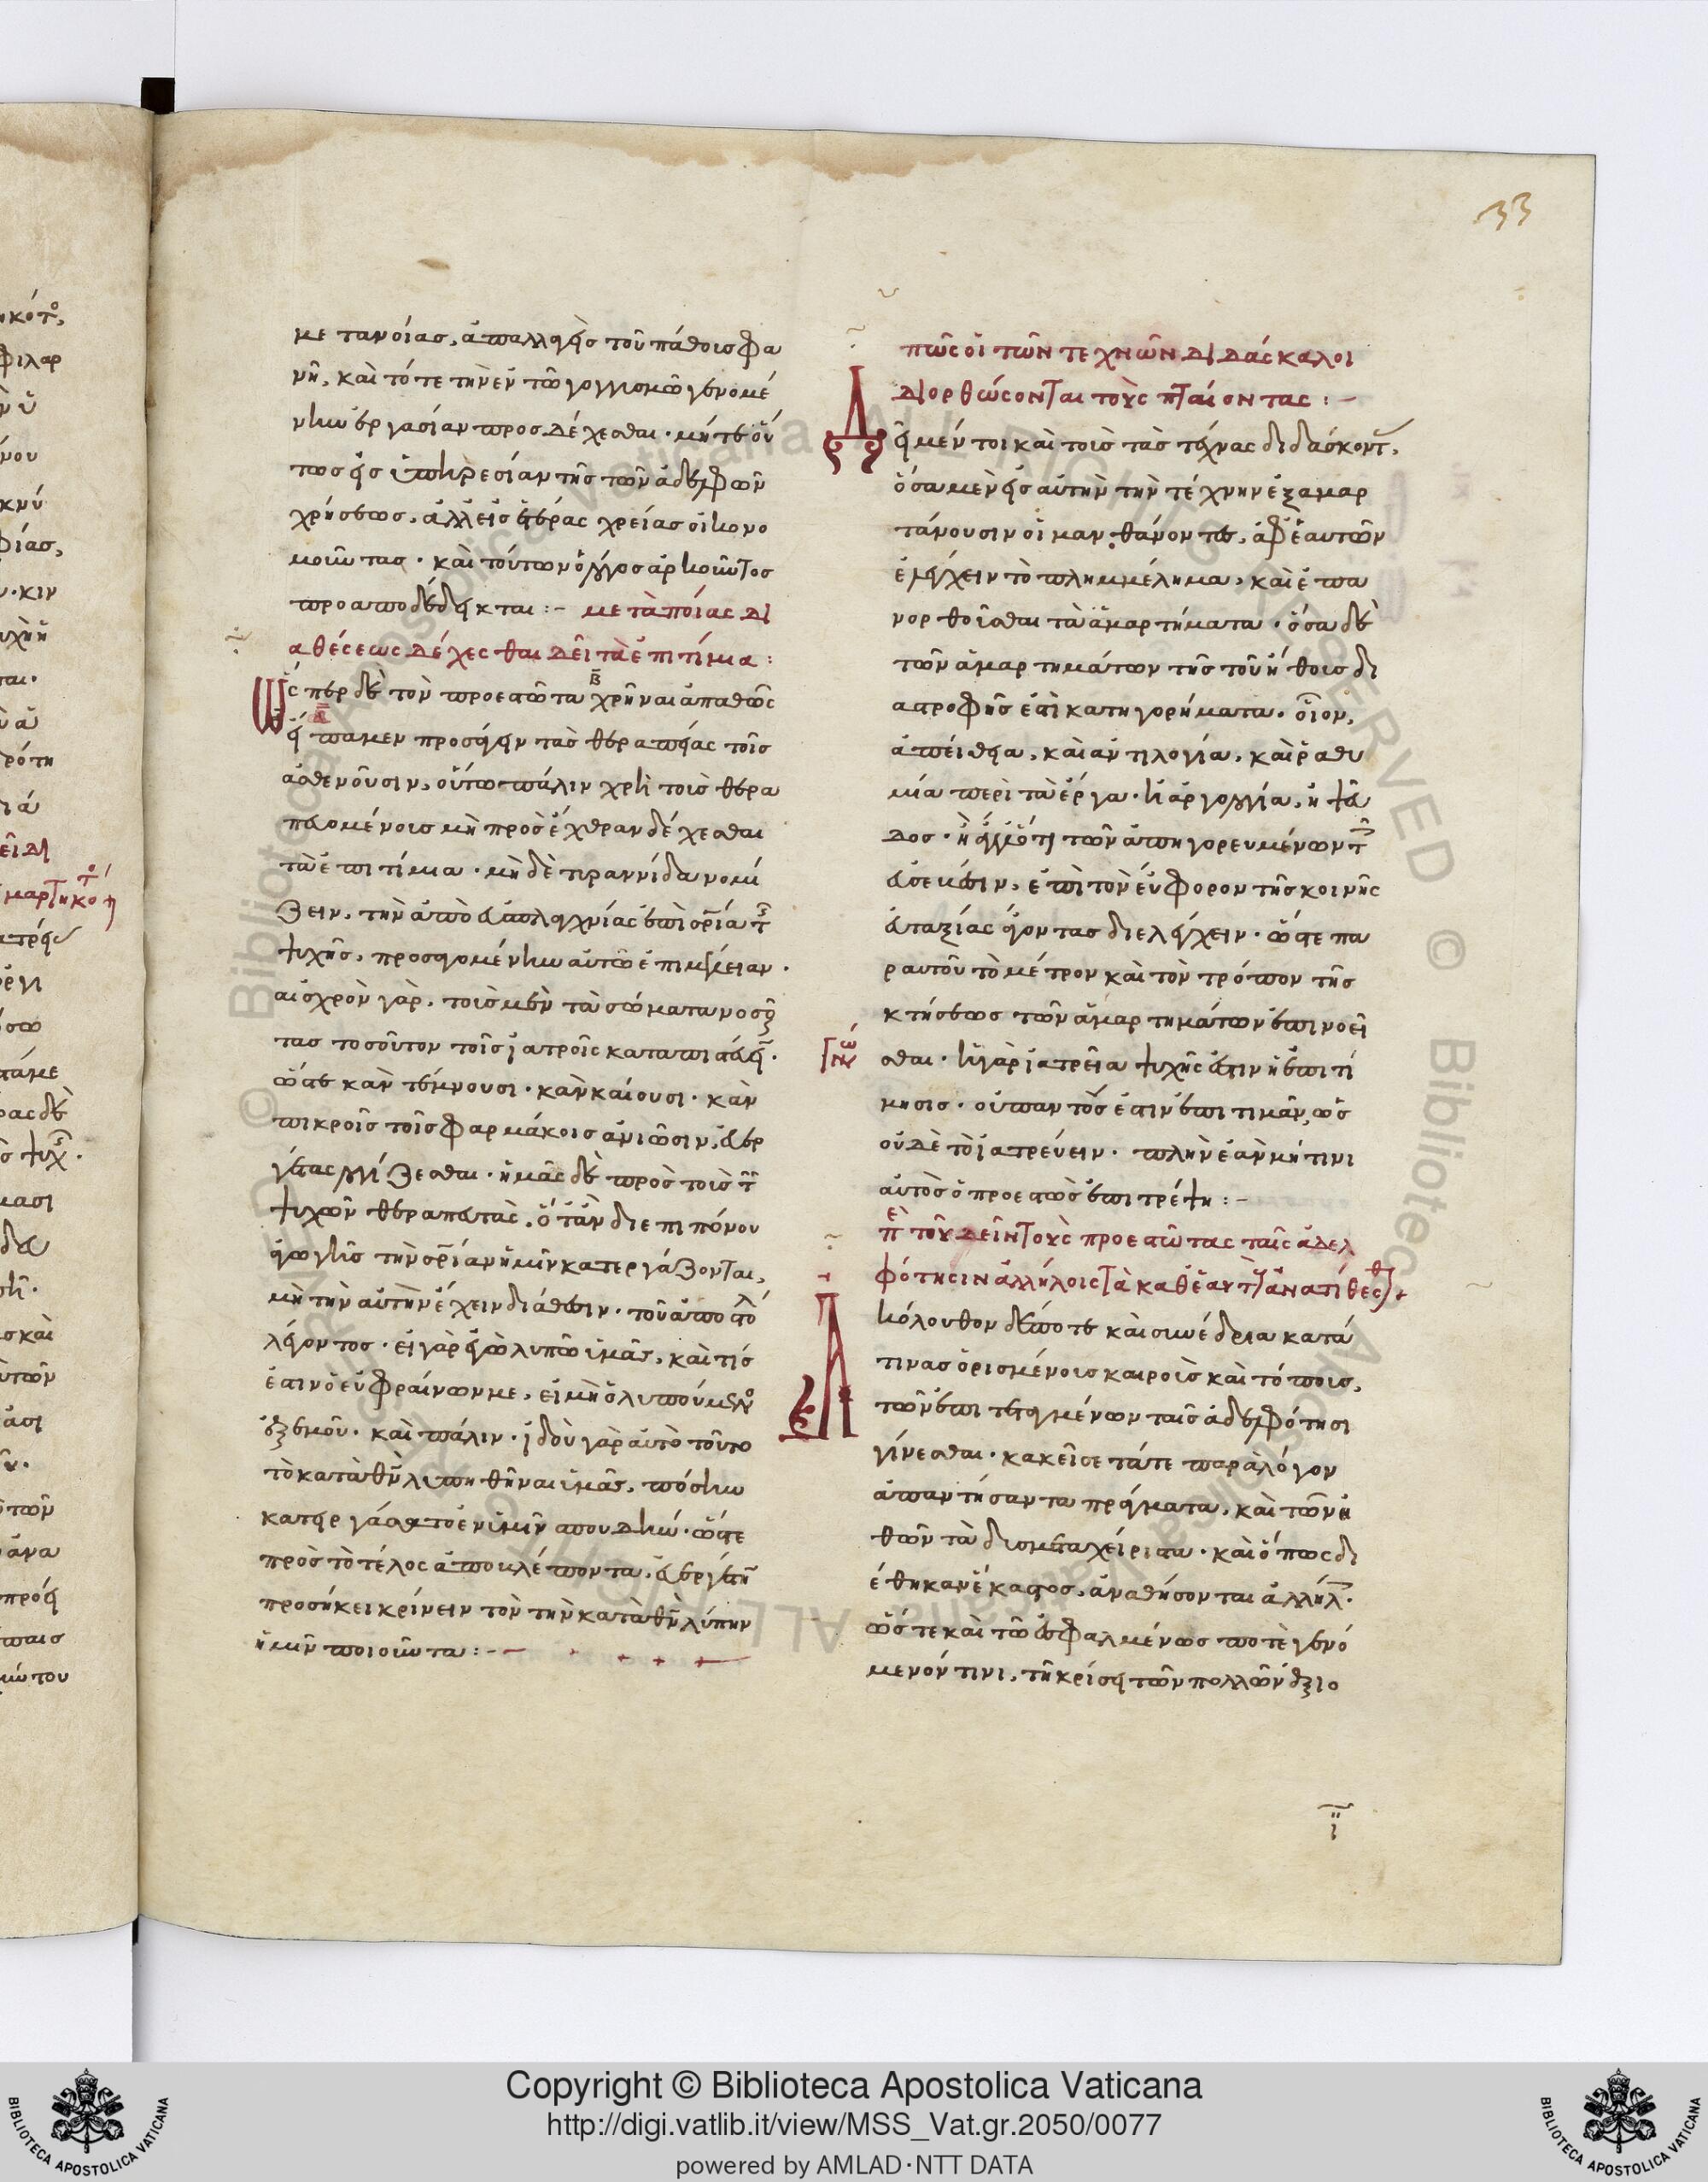 33
μετανοίας, ἀπαλλαγεὶς τοῦ πάθους φα
νῆ, καὶ τότε τὴν ἐν τῶ γογγυσμῶ γενομέ
νην ἐργασίαν προσδέχεσθαι· μήτε οὕ
τως εἰς ὑπηρεσίαν τῆς τῶν ἀδελφῶν
χρήσεως, ἀλλ εἰς ἑτέρας χρείας οἰκονο
μοῦντας· καὶ τούτων ὁ λόγος ἁρμοῦντος
προαποδέδεικται :- μετὰ ποίας δι
αθέσεως δέχεσθαι δεῖ τὰ ἐπιτίμια :
Ὥσπερ δὲ τὸν προεστῶτα χρῆναι ἀπαθῶς
εἴπαμεν προσάγειν τὰς θεραπείας τοῖς
ἀσθενοῦσιν, οὕτω πάλιν χρὴ τοὺς θερα
πευομένους μὴ πρὸς ἔχθραν δέχεσθαι
τὰ ἐπιτίμια· μὴ δὲ τυραννίδα νομί
ζειν, τὴν ἀπὸ εὐσπλαγχνίας ἐπὶ σρίᾳ τ
ψυχῆς, προσαγομένην αὐτῶ ἐπιμέλειαν·
αἰσχρὸν γὰρ, τοὺς μὲν τὰ σώματα νοσοῦ
τας τοσοῦτον τοῖς ἰατροῖς καταπιστεύειν·
ὥστε κἂν τέμνουσι· κἂν καίουσι· κἂν
πικροῖς τοῖς φαρμάκοις ἀνιῶσιν, εὐερ
γέτας λογίζεσθαι· ἡμᾶς δὲ πρὸς τοὺς τ
ψυχῶν θεραπευτὰς, ὅταν δι ἐπιπόνου
ἀγωγῆς τὴν σρίαν ἡμῖν κατεργάζονται,
μὴ τὴν αὐτὴν ἔχειν διάθεσιν· τοῦ ἀποστόλ
λέγοντος· εἰ γὰρ ἐγὼ λυπῶ ὑμᾶς, καὶ τίς
ἐστιν ὁ εὐφραίνων με, εἰ μὴ ὁ λυπούμενος
ἐξ ἐμοῦ· καὶ πάλιν· ἰδοὺ γὰρ αὐτὸ τοῦτο
τὸ κατὰ θν λυπηθῆναι ὑμᾶς, πόσην
κατειργάσατο ἐν ὑμῖν σπουδήν· ὥστε
πρὸς τὸ τέλος ἀποβλέποντα, εὐεργέτην
προσήκει κρίνειν τὸν τὴν κατὰ θν λύπην
ἡμῖν ποιοῦντα :-
πῶς οἱ τῶν τεχνῶν διδάσκαλοι
διορθώσονται τοὺς πταίοντας :-
Δεῖ μέν τοι καὶ τοὺς τὰς τέχνας διδάσκοντ,
ὅσα μὲν εἰς αὐτὴν τὴν τέχνην ἐξαμαρ
τάνουσιν οἱ μανθάνοντες, ἀφ ἑαυτῶν
ἐλέγχειν τὸ πλημμέλημα, καὶ ἐπα
νορθοῦσθαι τὰ ἁμαρτήματα· ὅσα δὲ
τῶν ἁμαρτημάτων τῆς τοῦ ἤθους δι
αστροφῆς ἐστὶ κατηγορήματα· οἷον,
ἀπείθεια, καὶ ἀντιλογία, καὶ ῥαθυ
μία περὶ τὰ ἔργα· ἢ ἀργολογία, ἢ ψεῦ
δος· ἢ ἄλλό τι τῶν ἀπηγορευμένων τ
εὐσεβέσιν, ἐπὶ τὸν ἔφορον τῆς κοινῆς
εὐταξίας ἄγοντας διελέγχειν· ὥστε πα
ρ αὐτοῦ τὸ μέτρον καὶ τὸν τρόπον τῆς
κτήσεως τῶν ἁμαρτημάτων ἐπινοεῖ
σθαι· ἢ γὰρ ἰατρεία ψυχῆς ἐστιν ἡ ἐπιτί
μησις· οὐ παντός ἐστιν ἐπιτιμᾶν, ὡς
οὐδὲ τὸ ἰατρεύειν· πλὴν ἐὰν μή τινι
αὐτὸς ὁ προεστὼς ἐπιτρέψη :-
πε τοῦ δεῖν τοὺς προεστῶτας ταῖς ἀδελ
φότησιν ἀλλήλοις τὰ καθ ἑαυτοὺς ἀνατίθεσθ
Ἀκόλουθον δέ ποτε καὶ συνέδρια κατά
τινας ὁρισμένους καιροὺς καὶ τόπους,
τῶν ἐπιτεταγμένων ταῖς ἀδελφότησι
γίνεσθαι· κακεῖσε τά τε παρὰ λόγον
ἀπαντήσαντα πράγματα, καὶ τῶν ἠ
θῶν τὰ δυσμεταχείριστα· καὶ ὅπως δι
έθηκαν ἕκαστος, ἀναθήσονται ἀλλήλ·
ὥστε καὶ τῶ ἐσφαλμένως ποτὲ γενό
μενόν τινι, τῆ κρίσει τῶν πολλῶν ἀξιο
ι
Copyright © Biblioteca Apostolica Vaticana
http://digi.vatlib.it/view/MSS_Vat.gr.2050/0077
powered by AMLAD·NTT DATA